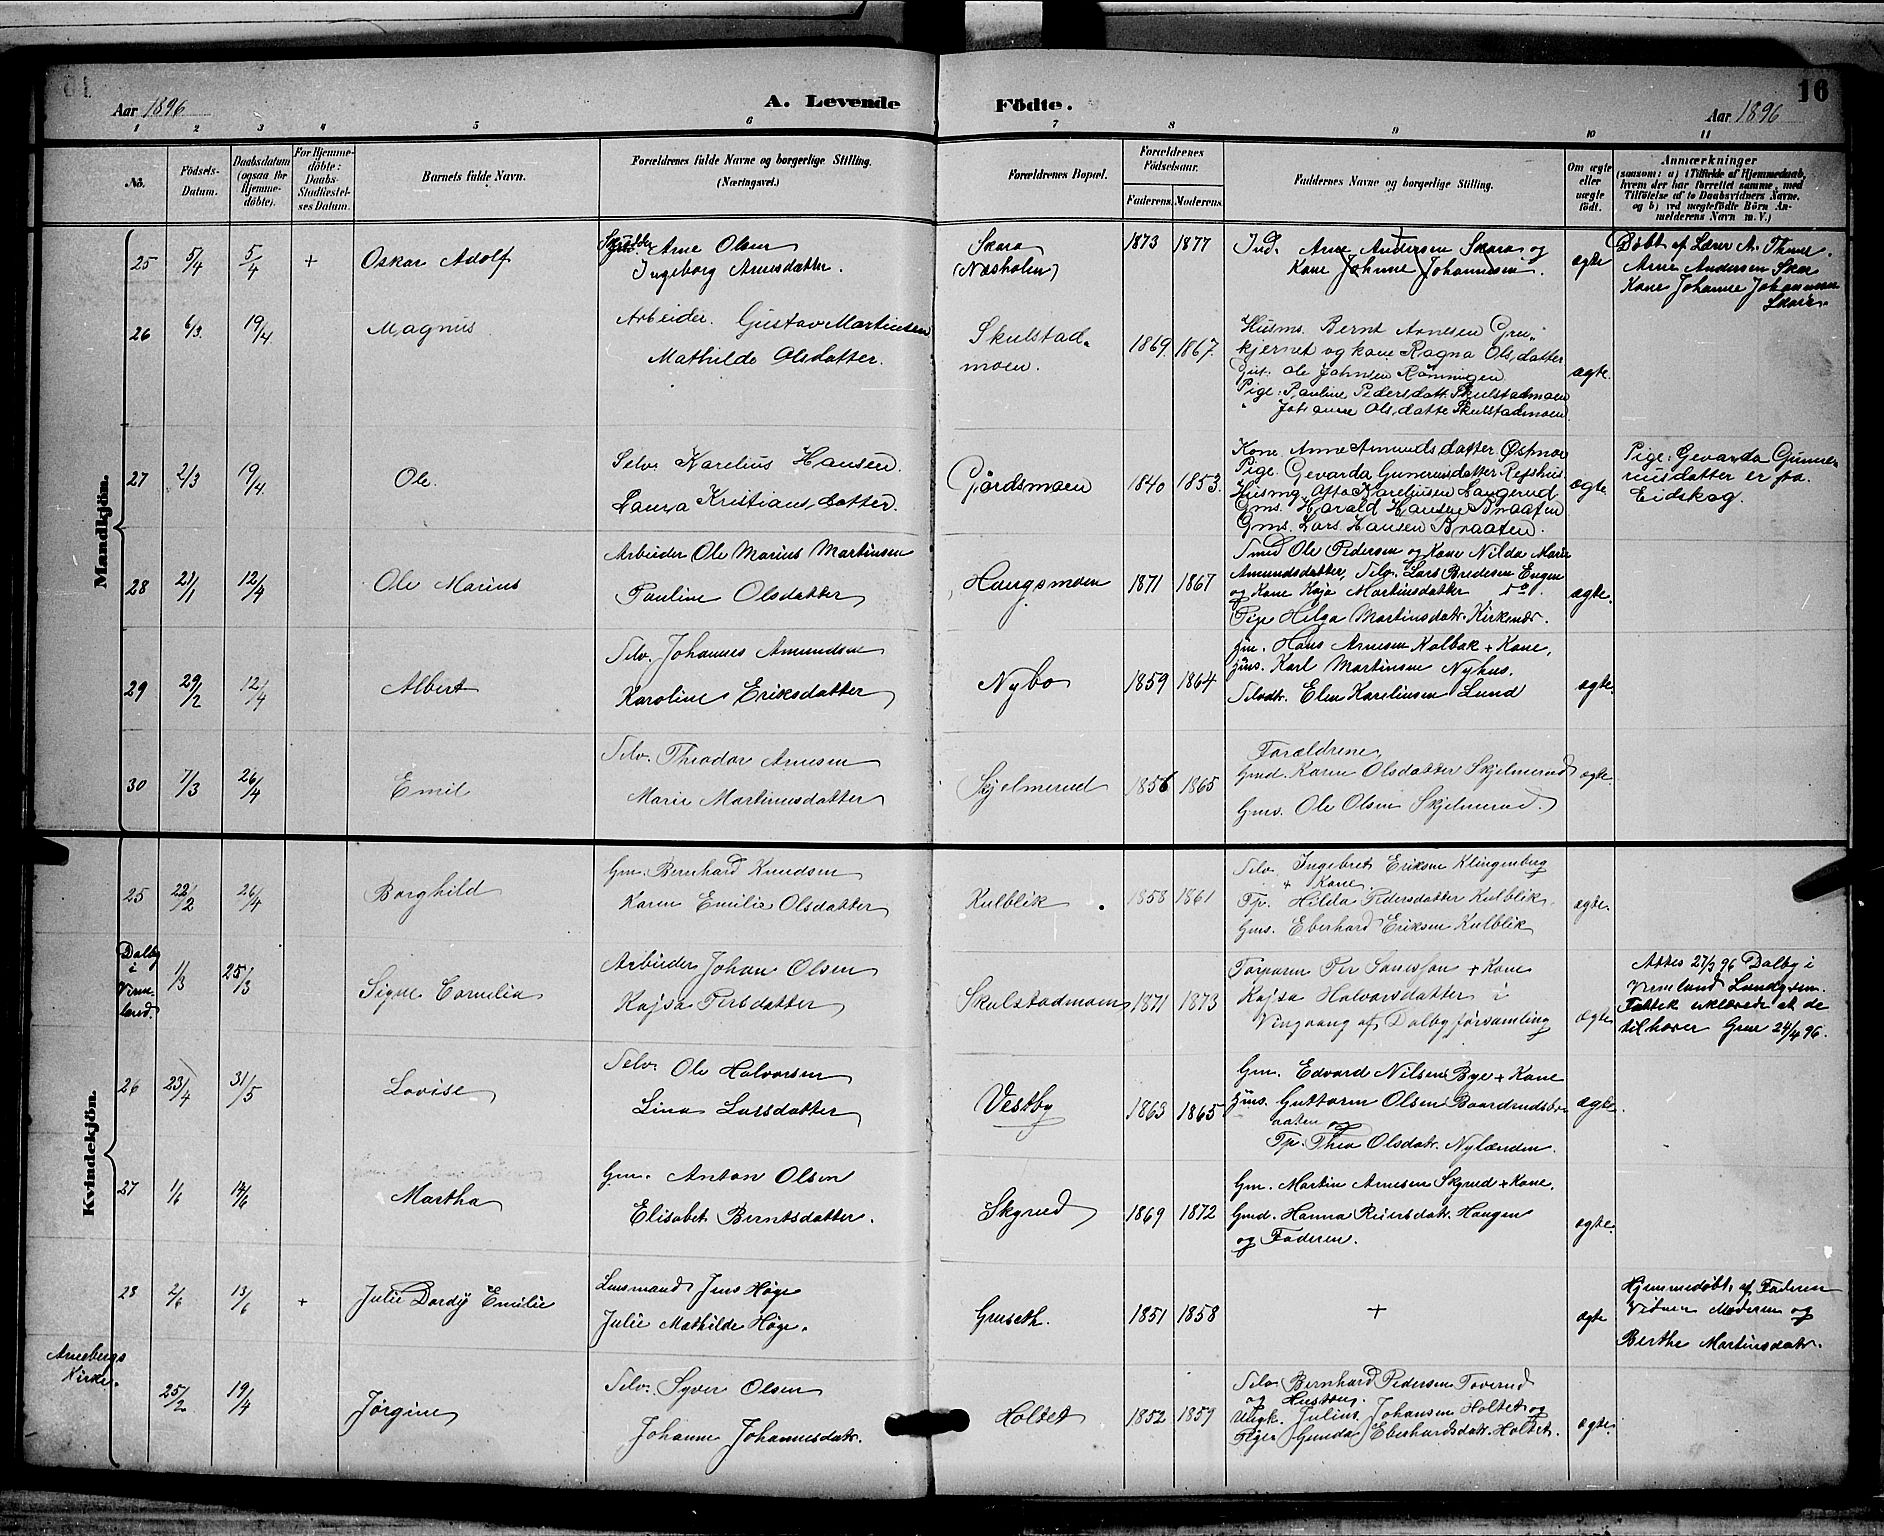 Aar 1896
A. Levende Födte.
Aar 1896
16
1 2 3 4 5 6 7 8 9 10 11
No.
Födsels-Datum.
Daabsdatum (ogsaa for Hjemme-döbte).
For Hjemme-döbte: Daabs-Stadfæstel-ses Datum.
Barnets fulde Navn.
Forældrenes fulde Navne og borgerlige Stilling.
(Næringsvei.)
Forældrenes Bopæl.
Forældrenes Födselsaar.
Faderens. Moderens.
Faddernes Navne og borgerlige Stilling.
Om ægte eller uægte födt.
Anmærkninger
(saasom: a) i Tilfælde af Hjemmedaab, hvem der har forrettet samme, med Tilföielse af to Daabsvidners Navne, og b) ved uægtefödte Börn An-melderens Navn m. V.)
Mandkjön.
25 5/4 5/4 + Oskar Adolf
Arne Olsen
Ingeborg Arnesdatter.
Skara
(Næsholen)
1873 1877
Ind. Arne Andersen Skara og
Kone Johanne Johannesen.
ægte
Döbt af Lærer A. Thune.
Arne Andersen Skar
Kone Johanne Johannesen
26 6/3 19/4 Magnus
Arbeider. Gustav Martinsen
Mathilde Olsdatter.
Skulstad-
moen.
1869 1867.
Husms. Bernt Arnesen Gru-
kjernet og kone Ragna Olsdatter
Gut. Ole Johnsen Rönningen
Pige: Pauline Pedersdatt. Skulstadmoen
" Johanne Olsdatte Skulstadmoen
ægte.
27 2/3 19/4. Ole.
Selv. Karelius Hansen.
Laura Kristiansdatter.
Gjördsmoen
1840 1853.
Kone Anne Amundsdatter Östmoe
Pige Gevarda Gunerusdatter
Husmd. Otto Karelinsen Langerud
Gms. Harald Hansen Braaten
Gms. Lars Hansen Braaten.
ægte
Pige: Gevarda Gunne-
riusdatter er fra
Eidskog.
28 21/1 12/4 Ole Marius
Arbeider Ole Marius Martinsen
Pauline Olsdatter
Haugsmoen
1871 1867
Smed Ole Pedersen og Kone Nilda Marie
Amundsdatter, Selv. Lars Bredesen Engen
og Kone Kaja Martinsdatter
Pige Helga Martinsdatr. Kirkenær.
ægte.
29 29/2 12/4 Albert
Selv. Johannes Amundsen
Karoline Eriksdatter
Nybo
1859 1864
Gm. Hans Arnesen Kolbak + Kone,
Gms. Karl Martinsen Nyhus.
Selvdtr. Elen Karelinsen Lund
ægte.
30 7/3 26/4 Emil
Selv. Theodor Arnesen
Marie Martinusdatter
Skjelmerud
1856 1865
Forældrene,
Gmd. Karen Olsdatter Skjelmerud
Gms. Ole Olsen Skjelmerud.
ægte.
Kvindekjön.
25 22/2 26/4 Borghild
Gm. Bernhard Knudsen
Karen Emilie Olsdatter
Kulblik
1858 1861
Selv. Ingebret Eriksen Klingenberg
+ Kone.
Tp. Hilda Pedersdatter Kulblik.
Gms. Eberhard Eriksen Kulblik
ægte.
Dalby
i
Verm-
land.
1/3 25/3 Signe Cornelia
Arbeider Johan Olsen
Kajsa Persdatter
Skulstadmoen
1871 1873
Torparen Per Sonesson + Kone
Kajsa Halvorsdatter i
Vingaang af Dalby församling
ægte
Attes 27/3 96 Dalby i
Vermland
Fattek erklærede at de
tilhører Grue 24/4 96.
26 23/4 31/5 Lovise
Selv. Ole Halvorsen
Lina Larsdatter
Vestby
1863 1865
Gm. Edvard Nilsen Bye + Kone
Gms. Guttorm Olsen Baardrudsbr-
aaten og
Tp. Thea Olsdatr. Nylænden.
ægte.
27 1/6 14/6 Martha
Gm. Anton Olsen
Elisabet Berntsdatter.
Skyrud
1869 1872
Gm. Martin Arnesen Skyrud + Kone.
Gmd. Hanna Reiersdatr. Haugen
og Faderen.
ægte.
28 2/6 13/6 + Julie Dordij Emilie
Lensmand Jens Höye
Julie Mathilde Höye.
Grueseth.
1851 1858
+
ægte
Hjemmedöbt af Faderen
Vidner Moderen og
Berthe Martinsdatr.
Arnebergs
Kirke.
25/2 19/4 Jörgine
Selv. Syver Olsen
Johanne Johannesdatr.
Holtet
1852 1859
Selv. Bernhard Pedersen Toverud
og Hustrue.
Ungk. Julius Johansen Holtet og
Pigen Gunda Eberhardsdatr. Holtet.
ægte.